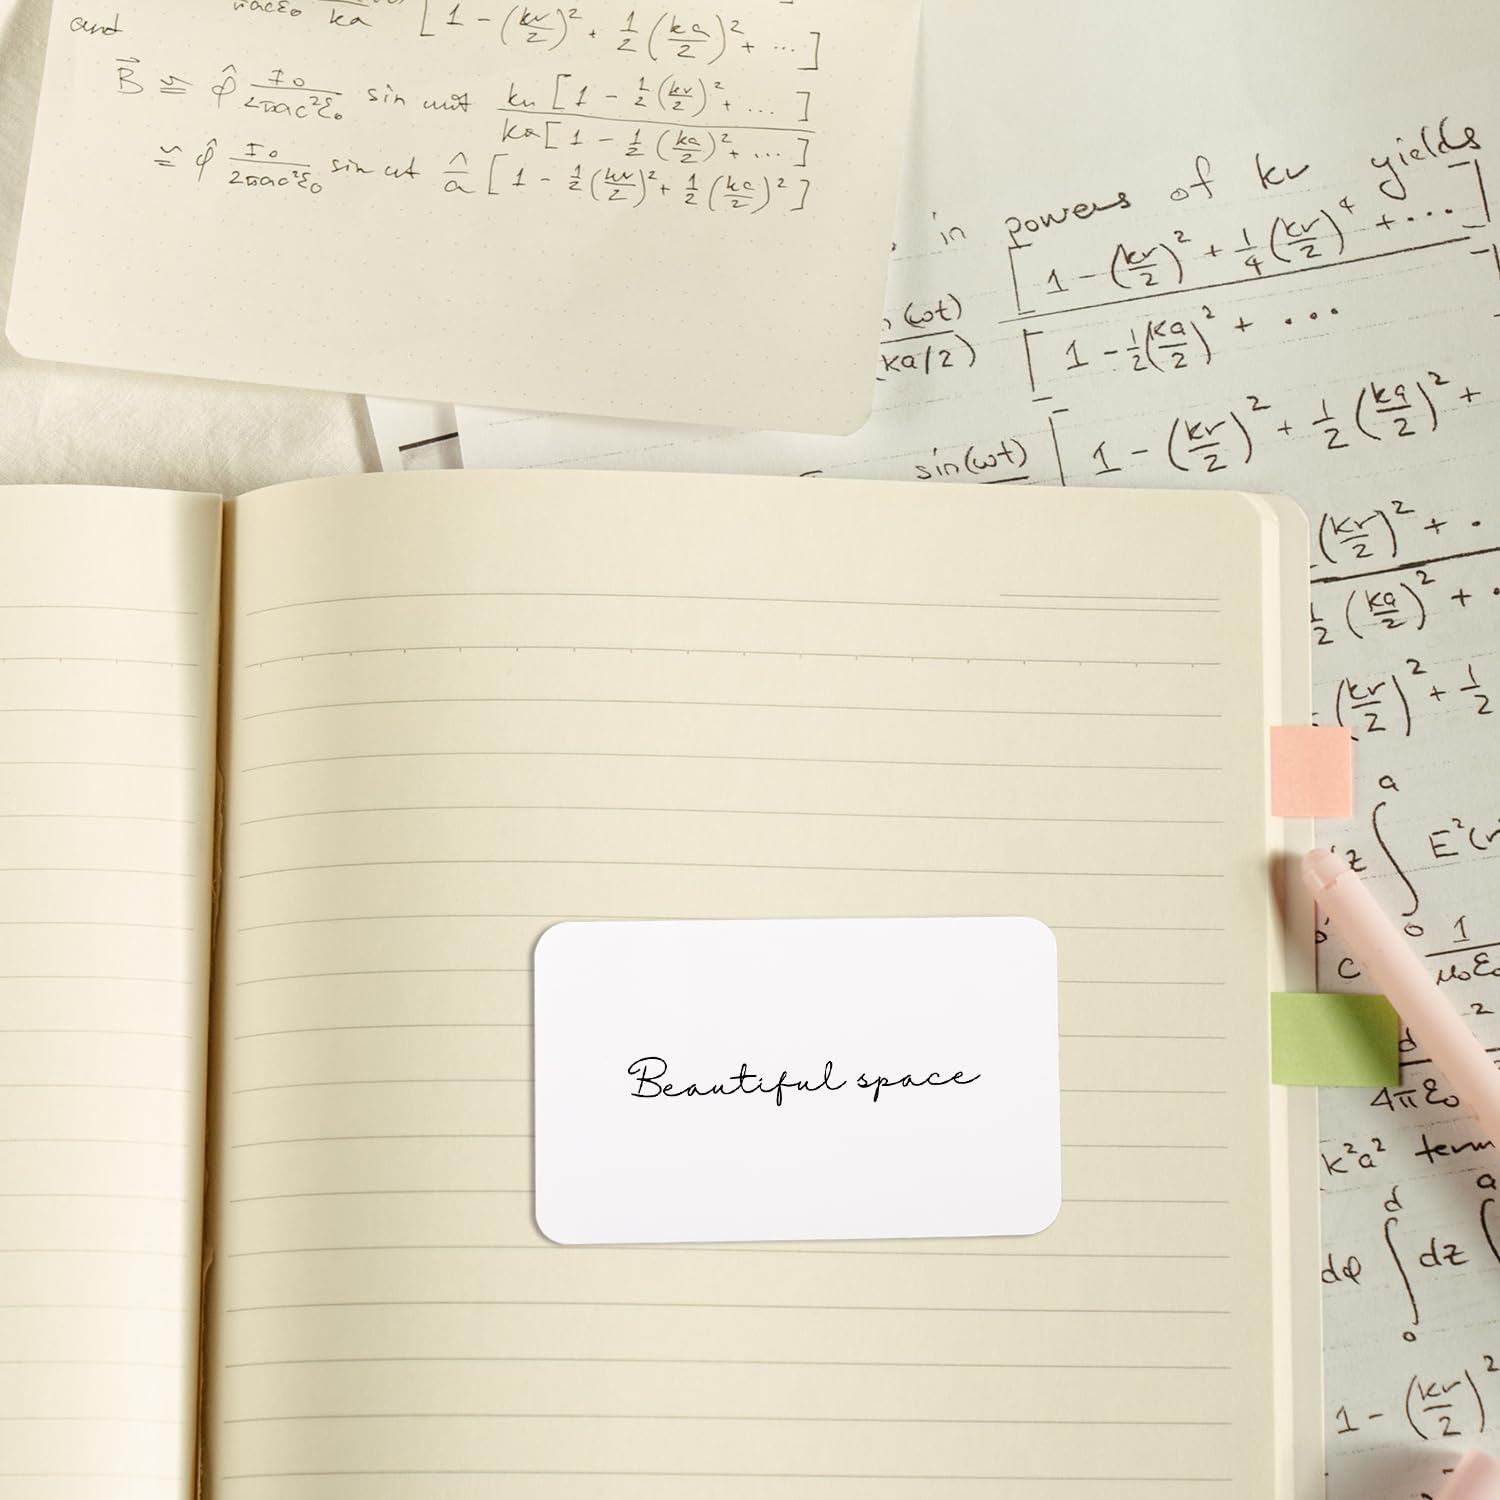 and
B⃗ ≅ φ̂ I₀/2πac²ε₀ sin ωt kr[1 - ½(kr/2)² + ...] / ka[1 - ½(ka/2)² + ...]
≅ φ̂ I₀/2πac²ε₀ sin ωt r/a [1 - ½(kr/2)² + ½(ka/2)²]
in powers of kr yields
[1 - (kr/2)² + ¼(kr/2)⁴ + ...]
(ωt)
(ka/2)
[1 - ½(ka/2)² + ...
sin(ωt) [1 - (kr/2)² + ½(ka/2)² +
(kr/2)² + .
½(ka/2)² + .
(kr/2)² + ½
a
z ∫ E²(r
0
c 1/μ₀ε₀
d 2
4πε₀
k²a² term
d a
dφ ∫ dz ∫
0
1 - (kr/2)²
Beautiful space